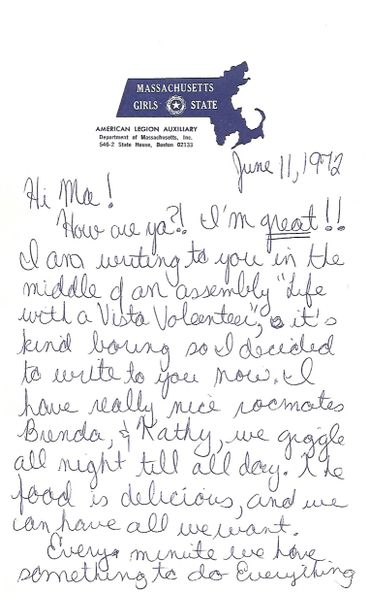 MASSACHUSETTS
GIRLS STATE
AMERICAN LEGION AUXILIARY
Department of Massachusetts, Inc.
546-2 State House, Boston 02133
June 11, 1972
Hi Ma!
How are ya?! I'm great!!
I am writing to you in the
middle of an assembly "Life
with a Vista Volenteer," it's
kind boring so I decided
to write to you now. I
have really nice roomates
Brenda, & Kathy, we giggle
all night till all day. The
food is delicious, and we
can have all we want.
Every minute we have
something to do Everything